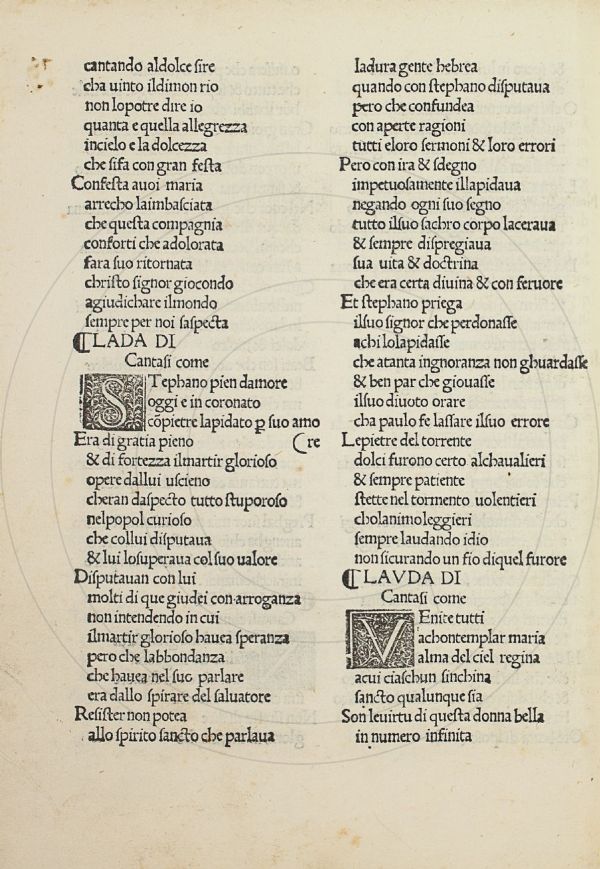 cantando aldolce ſire
cha uinto ildimon rio
non lopotre dire io
quanta e quella allegrezza
incielo e la dolcezza
che ſifa con gran feſta
Confeſta auoi maria
arrecho laimbaſciata
che queſta compagnia
conforti che adolorata
fara ſuo ritornata
chriſto ſignor giocondo
agiudichare ilmondo
ſempre per noi ſaſpecta
⸿LADA DI
Cantaſi come
STephano pien damore
oggi e in coronato
cōpietre lapidato ꝑ ſuo amo
Era di gratia pieno (re
& di fortezza ilmartir glorioſo
opere dallui uſcieno
cheran daſpecto tutto ſtuporoſo
nelpopol curioſo
che collui diſputaua
& lui loſuperaua col ſuo ualore
Diſputauan con lui
molti di que giudei con arroganza
non intendendo in cui
ilmartir glorioſo hauea ſperanza
pero che labbondanza
che hauea nel ſuo parlare
era dallo ſpirare del ſaluatore
Reſiſter non potea
allo ſpirito ſancto che parlaua
ladura gente hebrea
quando con ſtephano diſputaua
pero che confundea
con aperte ragioni
tutti eloro ſermoni & loro errori
Pero con ira & ſdegno
impetuoſamente illapidaua
negando ogni ſuo ſegno
tutto ilſuo ſachro corpo laceraua
& ſempre diſpregiaua
ſua uita & doctrina
che era certa diuina & con feruore
Et ſtephano priega
ilſuo ſignor che perdonaſſe
achi lolapidaſſe
che atanta ingnoranza non ghuardaſſe
& ben par che giouaſſe
ilſuo diuoto orare
cha paulo fe laſſare ilſuo errore
Lepietre del torrente
dolci furono certo alchaualieri
& ſempre patiente
ſtette nel tormento uolentieri
cholanimo leggieri
ſempre laudando idio
non ſicurando un fio diquel furore
⸿LAVDA DI
Cantaſi come
VEnite tutti
achontemplar maria
alma del ciel regina
acui ciaſchun ſinchina
ſancto qualunque ſia
Son leuirtu di queſta donna bella
in numero infinita